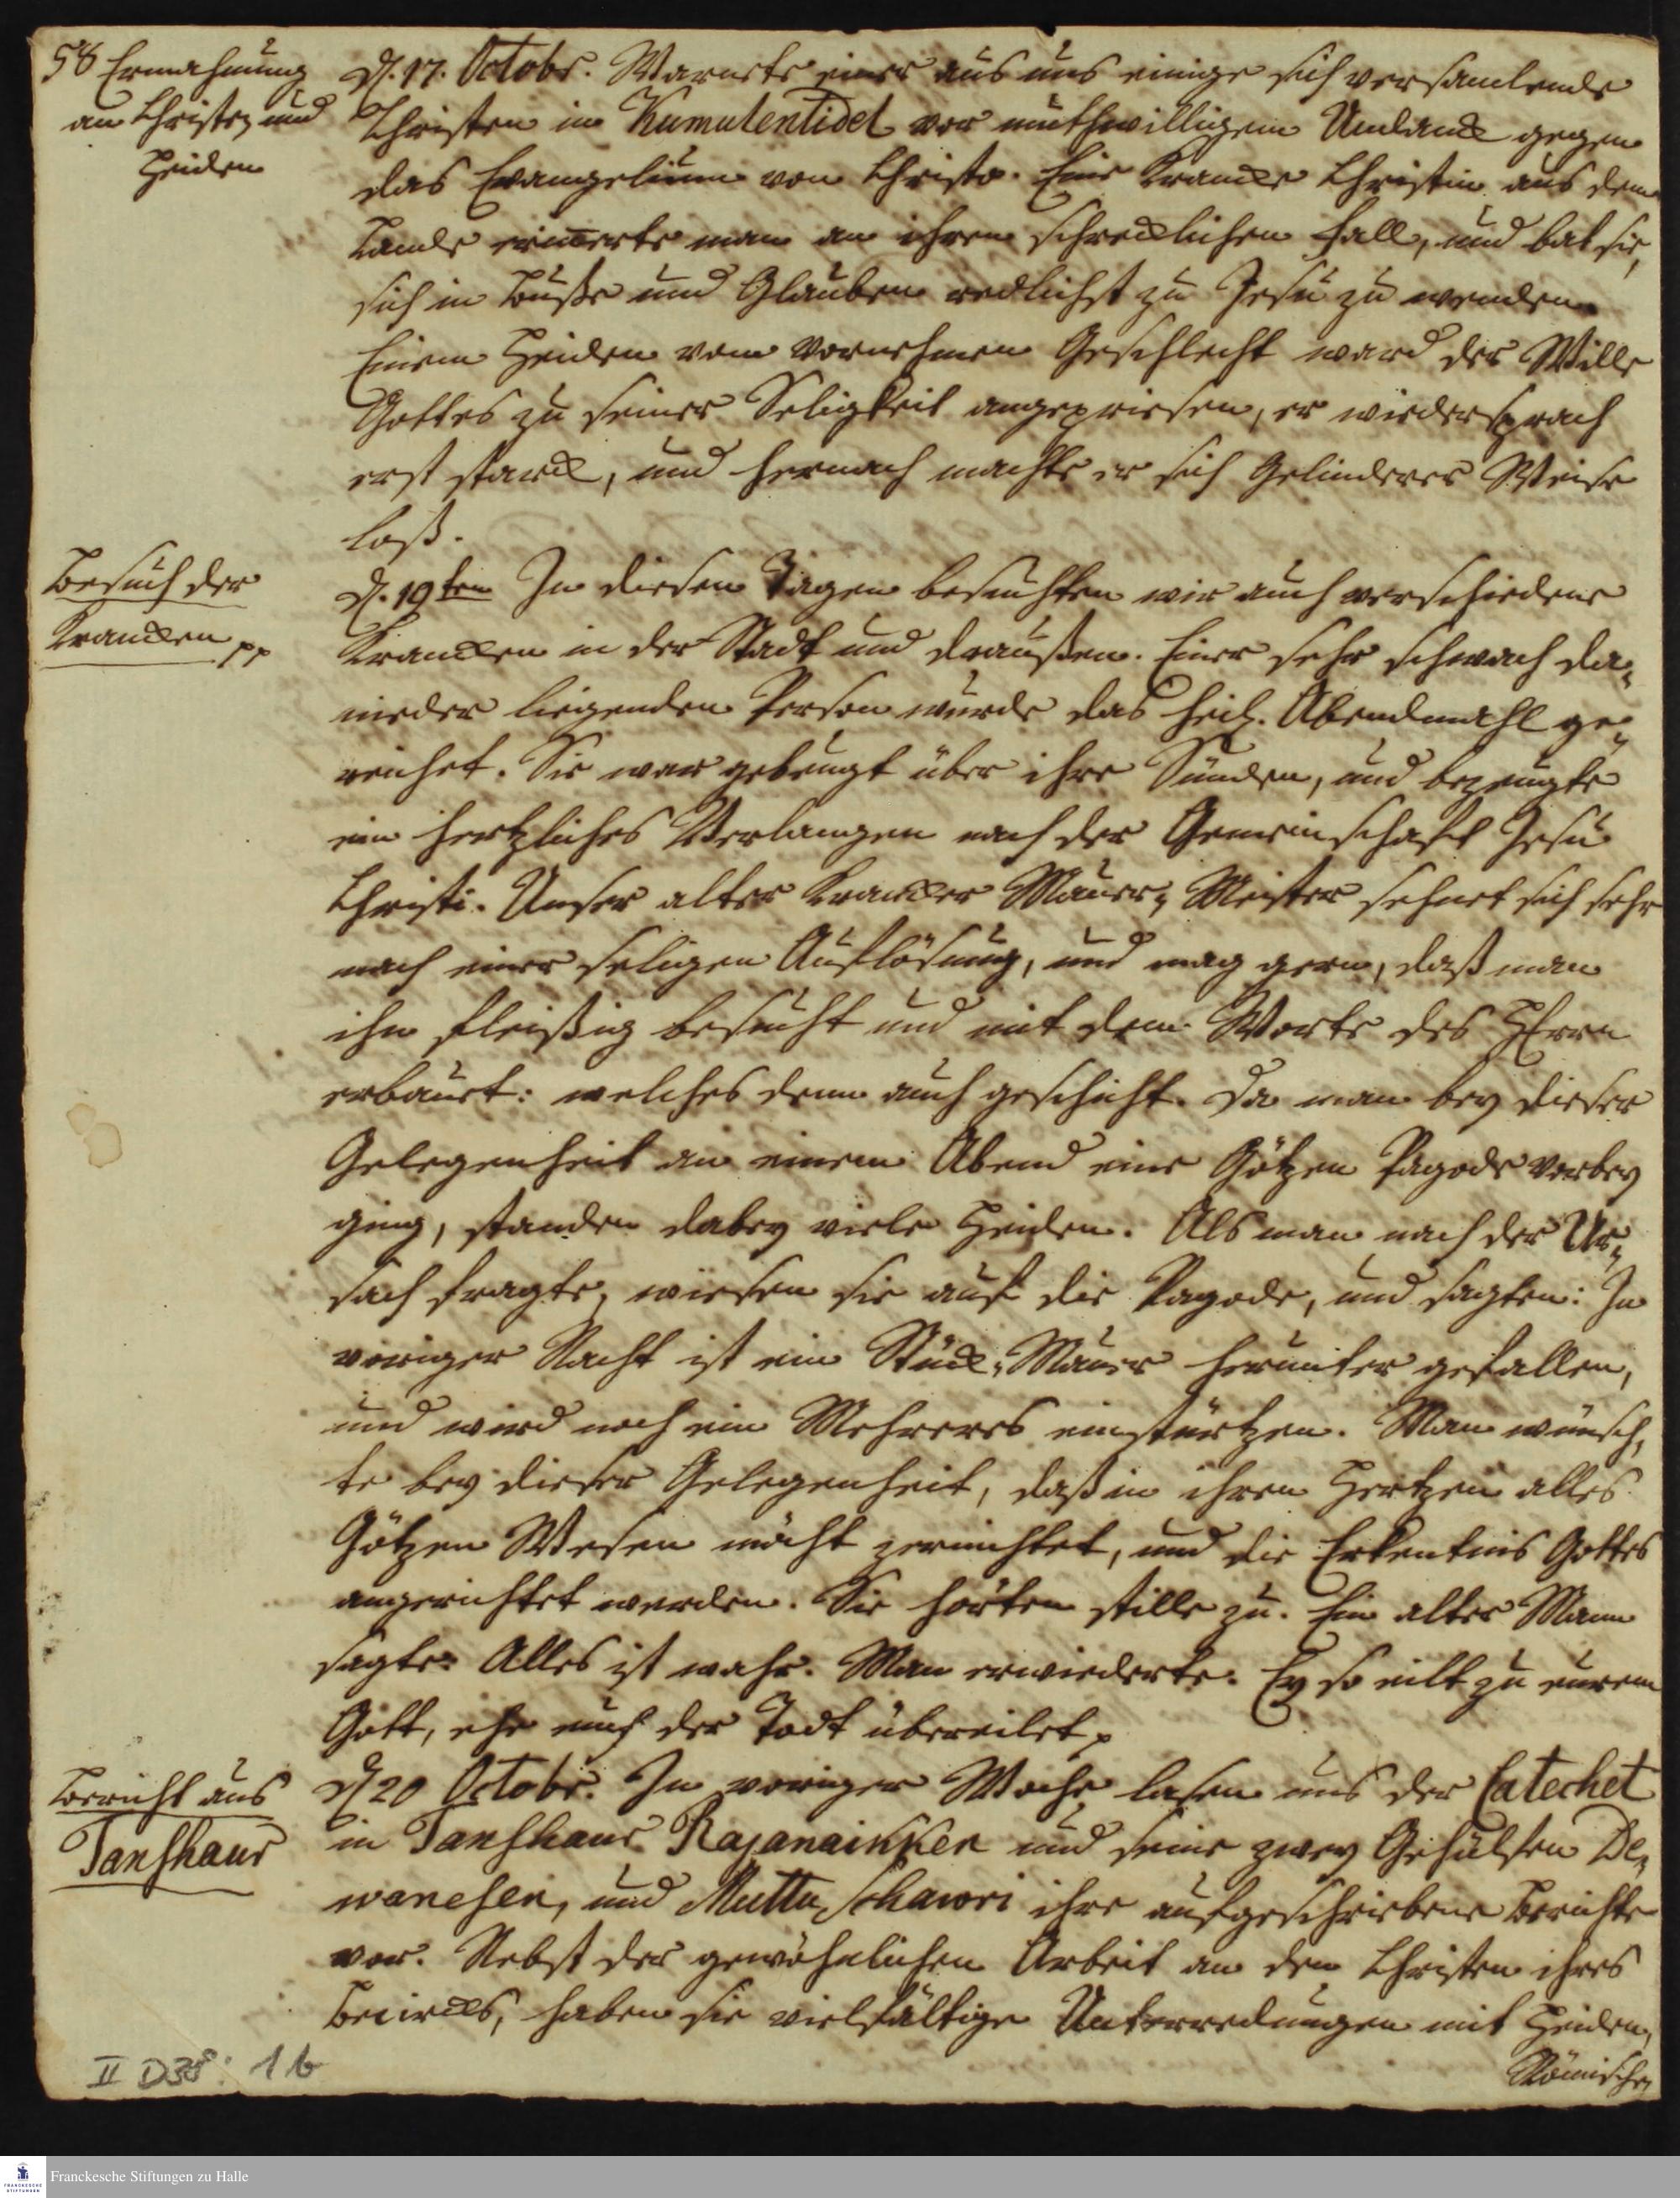 58 Ermahnung
an Christen und
Heiden
d. 17. Octobr. Warnete einer aus uns einige sich versamlende
Christen in Kumutentidel vor muthwilligem Undanck gegen
das Evangelium von Christo. Eine Krancke Christin aus dem
Lande erinnerte man an ihren schrecklichen Fall, und bat sie,
sich in Buße und Glauben redlichst zu Jesu zu wenden.
Einem Heiden vom vornehmen Geschlecht ward der Wille
Gottes zu seiner Seligkeit angepriesen, er wiedersprach
erst starck, und hernach machte er sich Gelinderer Weise
loß.
Besuch der
Krancken pp
d. 19ten In diesen Tagen besuchten wir auch verschiedene
Krancken in der Stadt und draußen. Einer sehr schwach da-
nieder liegenden Person wurde das heil. Abendmahl ge-
reichet. Sie war gebeugt über ihre Sünden, und bezeugte
ein hertzliches Verlangen nach der Gemeinschaft Jesu
Christi. Unser alter Krancker Maurer-Meister sehnet sich sehr
nach einer seligen Auflösung, und mag gern, daß man
ihn fleißig besucht und mit dem Worte des HErrn
erbauet: welches denn auch geschicht. Da man bey dieser
Gelegenheit an einem Abend eine Götzen Pagode vorbey
ging, standen dabey viele Heiden. Als man nach der Ur-
sach fragte, wiesen sie auf die Pagode, und sagten: In
voriger Nacht ist ein Stück-Mauer herunter gefallen,
und wird noch ein Mehreres einstürtzen. Man wünsch-
te bey dieser Gelegenheit, daß in ihren Hertzen alles
Götzen Wesen möcht zernichtet, und die Erkentnis Gottes
angerichtet werden. Sie hörten stille zu. Ein alter Mann
sagte: Alles ist wahr. Man erwiederte. Ey so eilt zu eurem
Gott, ehe euch der Todt übereilet.
Bericht aus
Tanshaur
d 20 Octobr. In voriger Woche lasen uns der Catechet
in Tanshaur Rajanaikken und seine zwey Gehülfen De-
wanesen, und Muttu Schawri ihre aufgeschriebene Berichte
vor. Nebst der gewöhnlichen Arbeit an den Christen ihres
Bezircks, haben sie vielfältige Unterredungen mit Heiden,
Römische
II D38: 1b
Franckesche Stiftungen zu Halle
FRANCKESCHE
STIFTUNGEN